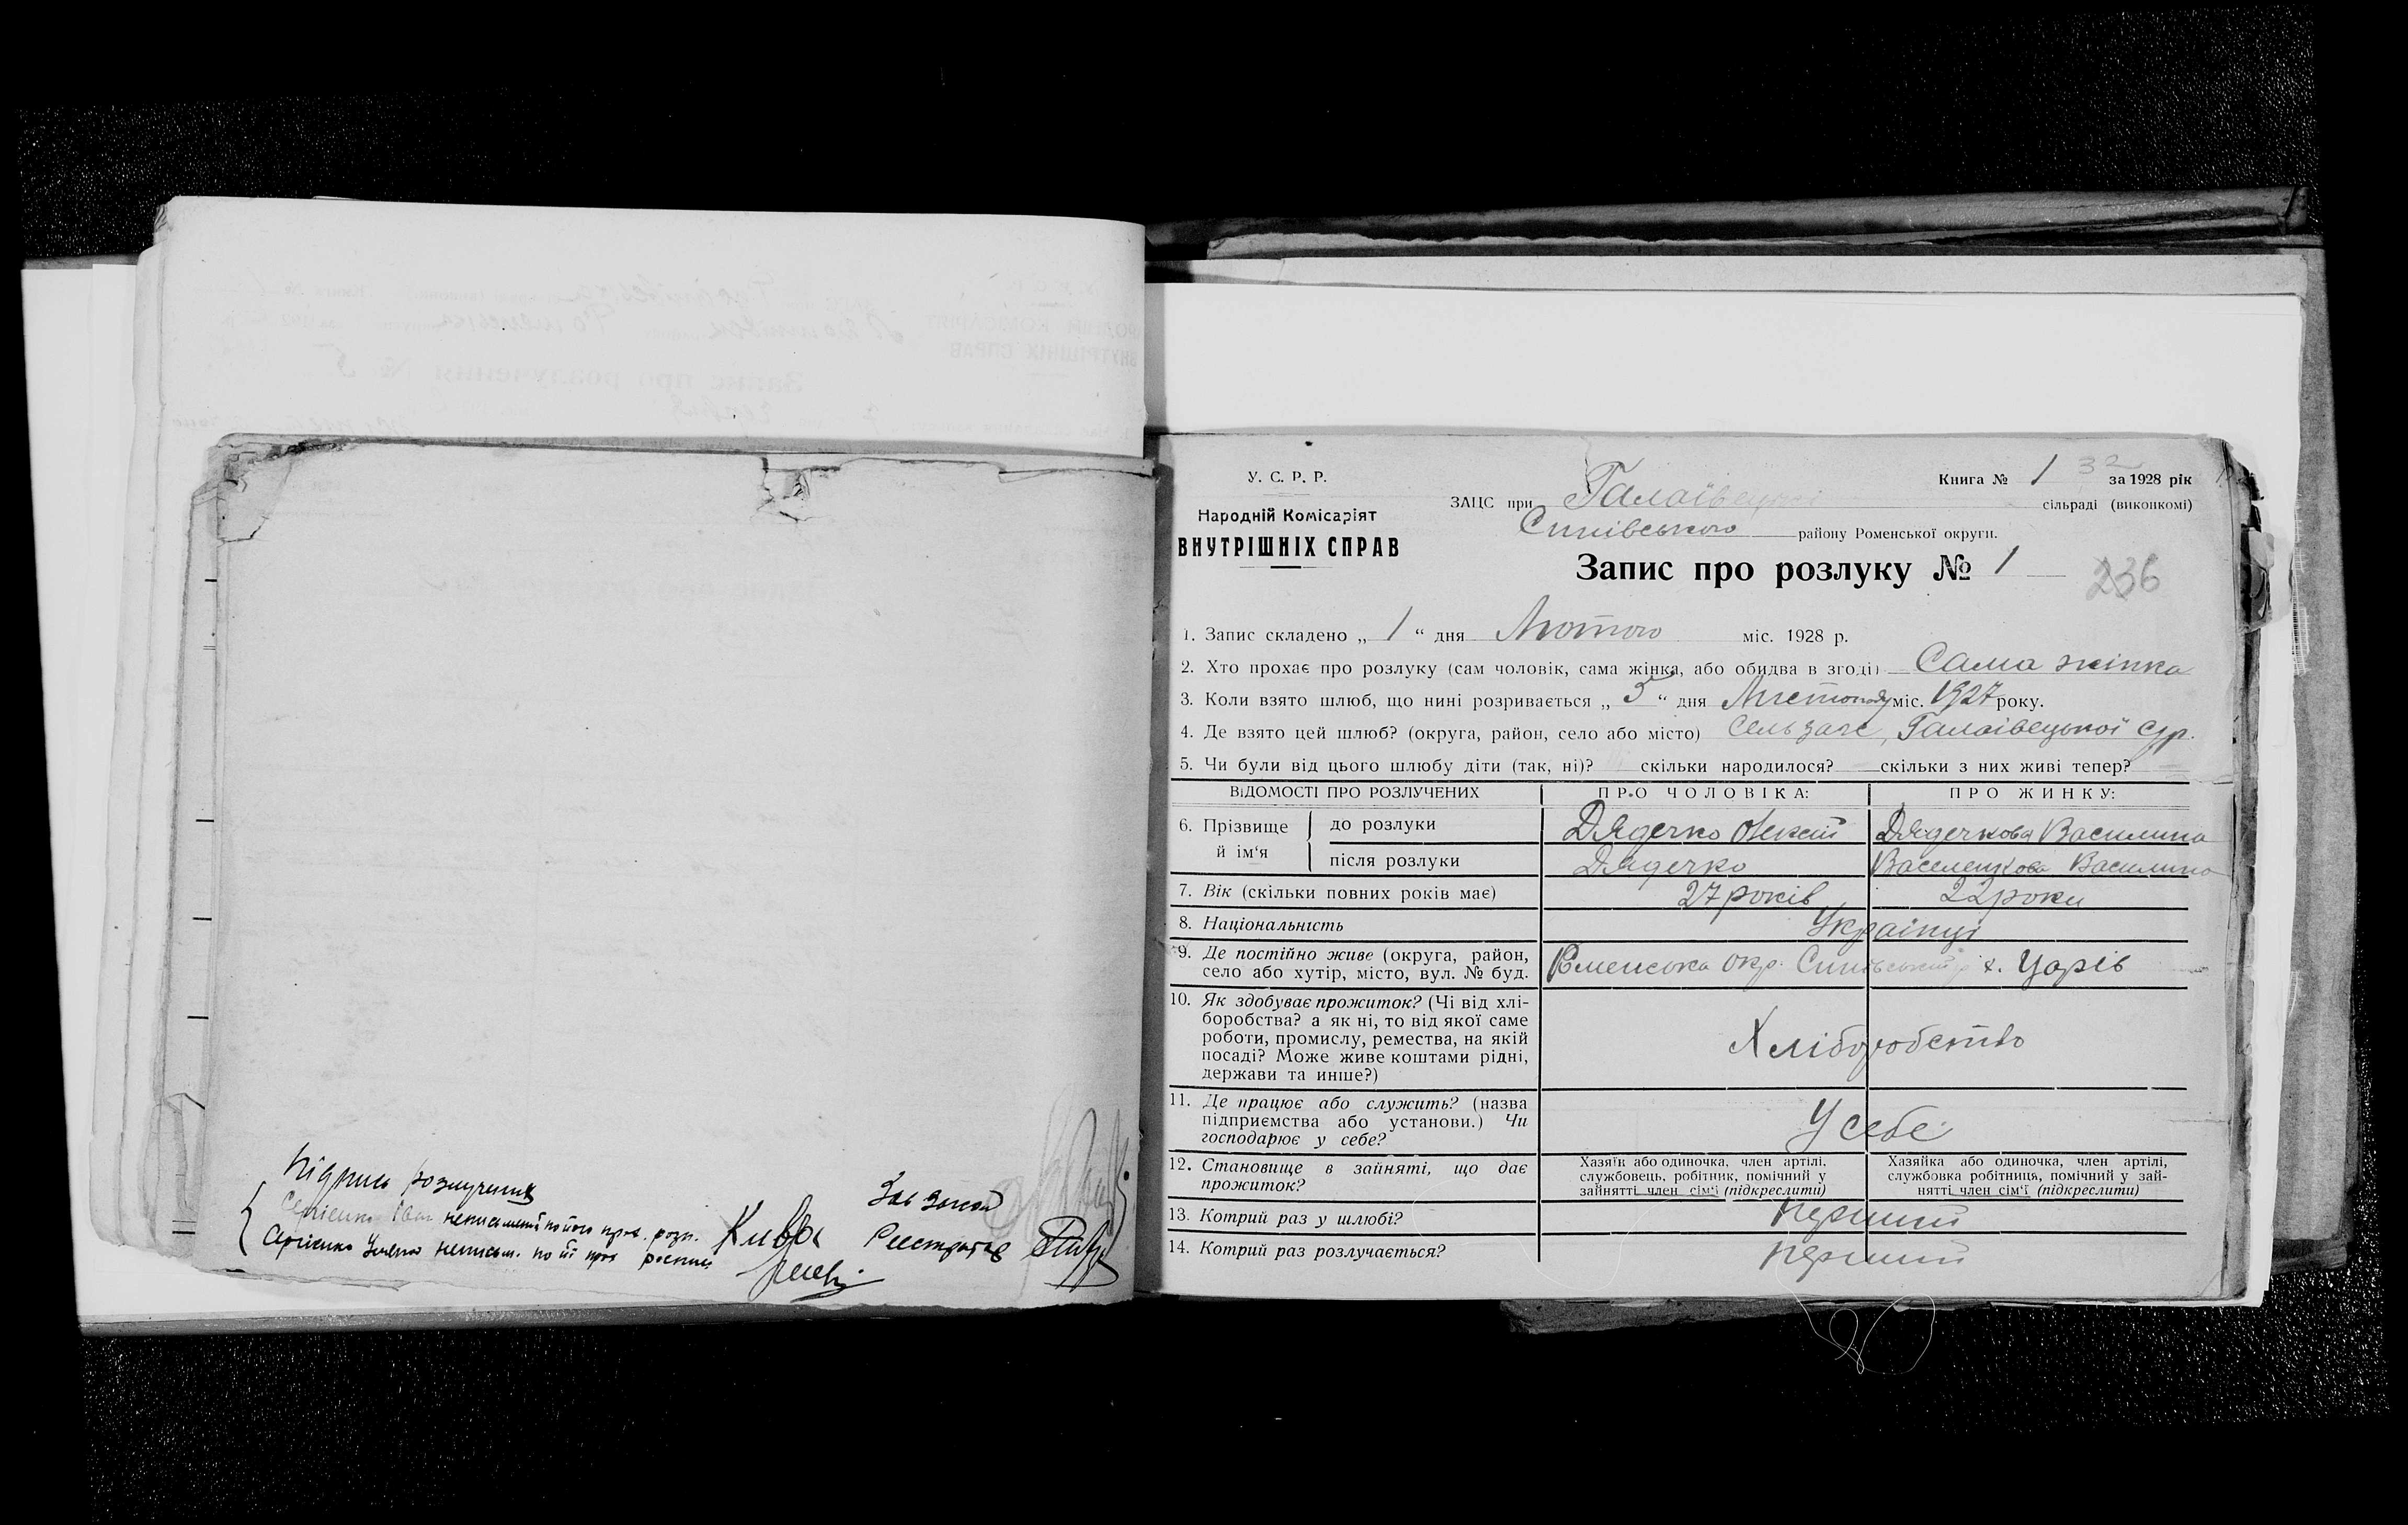 Підпись розлучених
Іван неписьмений по його прос. розп.
неписьм. по її прос росписи
Зав Загсом
Реєстратор
У. С. Р. Р.
Народній Комісаріят
ВНУТРІШНІХ СПРАВ
Книга № 1 32 за 1928 рік
ЗАЦС при Галаївецькій сільраді (виконкомі)
Синівського району Роменської округи.
Запис про розлуку № 1
236
1. Запис складено „ 1 “ дня Лютого міс. 1928 р.
2. Хто прохає про розлуку (сам чоловік, сама жінка, або обидва в згоді) Сама жінка
3. Коли взято шлюб, що нині розривається „ 5 “ дня Листопаду міс. 1927 року.
4. Де взято цей шлюб? (округа, район, село або місто) Сельзагс, Галаівецької с/р.
5. Чи були від цього шлюбу діти (так, ні)? скільки народилося? — скільки з них живі тепер? —
ВІДОМОСТІ ПРО РОЗЛУЧЕНИХ ПРО ЧОЛОВІКА: ПРО ЖИНКУ:
6. Прізвище й ім‘я до розлуки Дядечко Олексій Дядечкова Василина
після розлуки Дядечко Василина
7. Вік (скільки повних років має) 27 років 22 роки
8. Національність Українці
9. Де постійно живе (округа, район,
село або хутір, місто, вул. № буд. Роменська окр. Синівський р х. Царів
10. Як здобуває прожиток? (Чі від хлі-
боробства? а як ні, то від якої саме
роботи, промислу, ремества, на якій
посаді? Може живе коштами рідні,
держави та инше?) Хліборобство
11. Де працює або служить? (назва
підприємства або установи.) Чи
господарює у себе? У себе
12. Становище в зайняті, що дає
прожиток?
Хазяїн або одиночка, член артілі,
службовець, робітник, помічний у
зайнятті член сім‘ї (підкреслити)
Хазяйка або одиночка, член артілі,
службовка робітниця, помічний у зай-
нятті член сім‘ї (підкреслити)
13. Котрий раз у шлюбі? перший
14. Котрий раз розлучається? перший